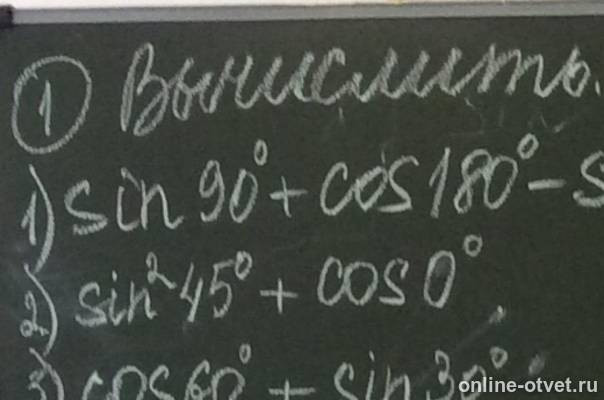 ① Вычислить.
1) sin 90° + cos 180° - s
2) sin² 45° + cos 0°
3) cos 60° + sin 30°
online-otvet.ru